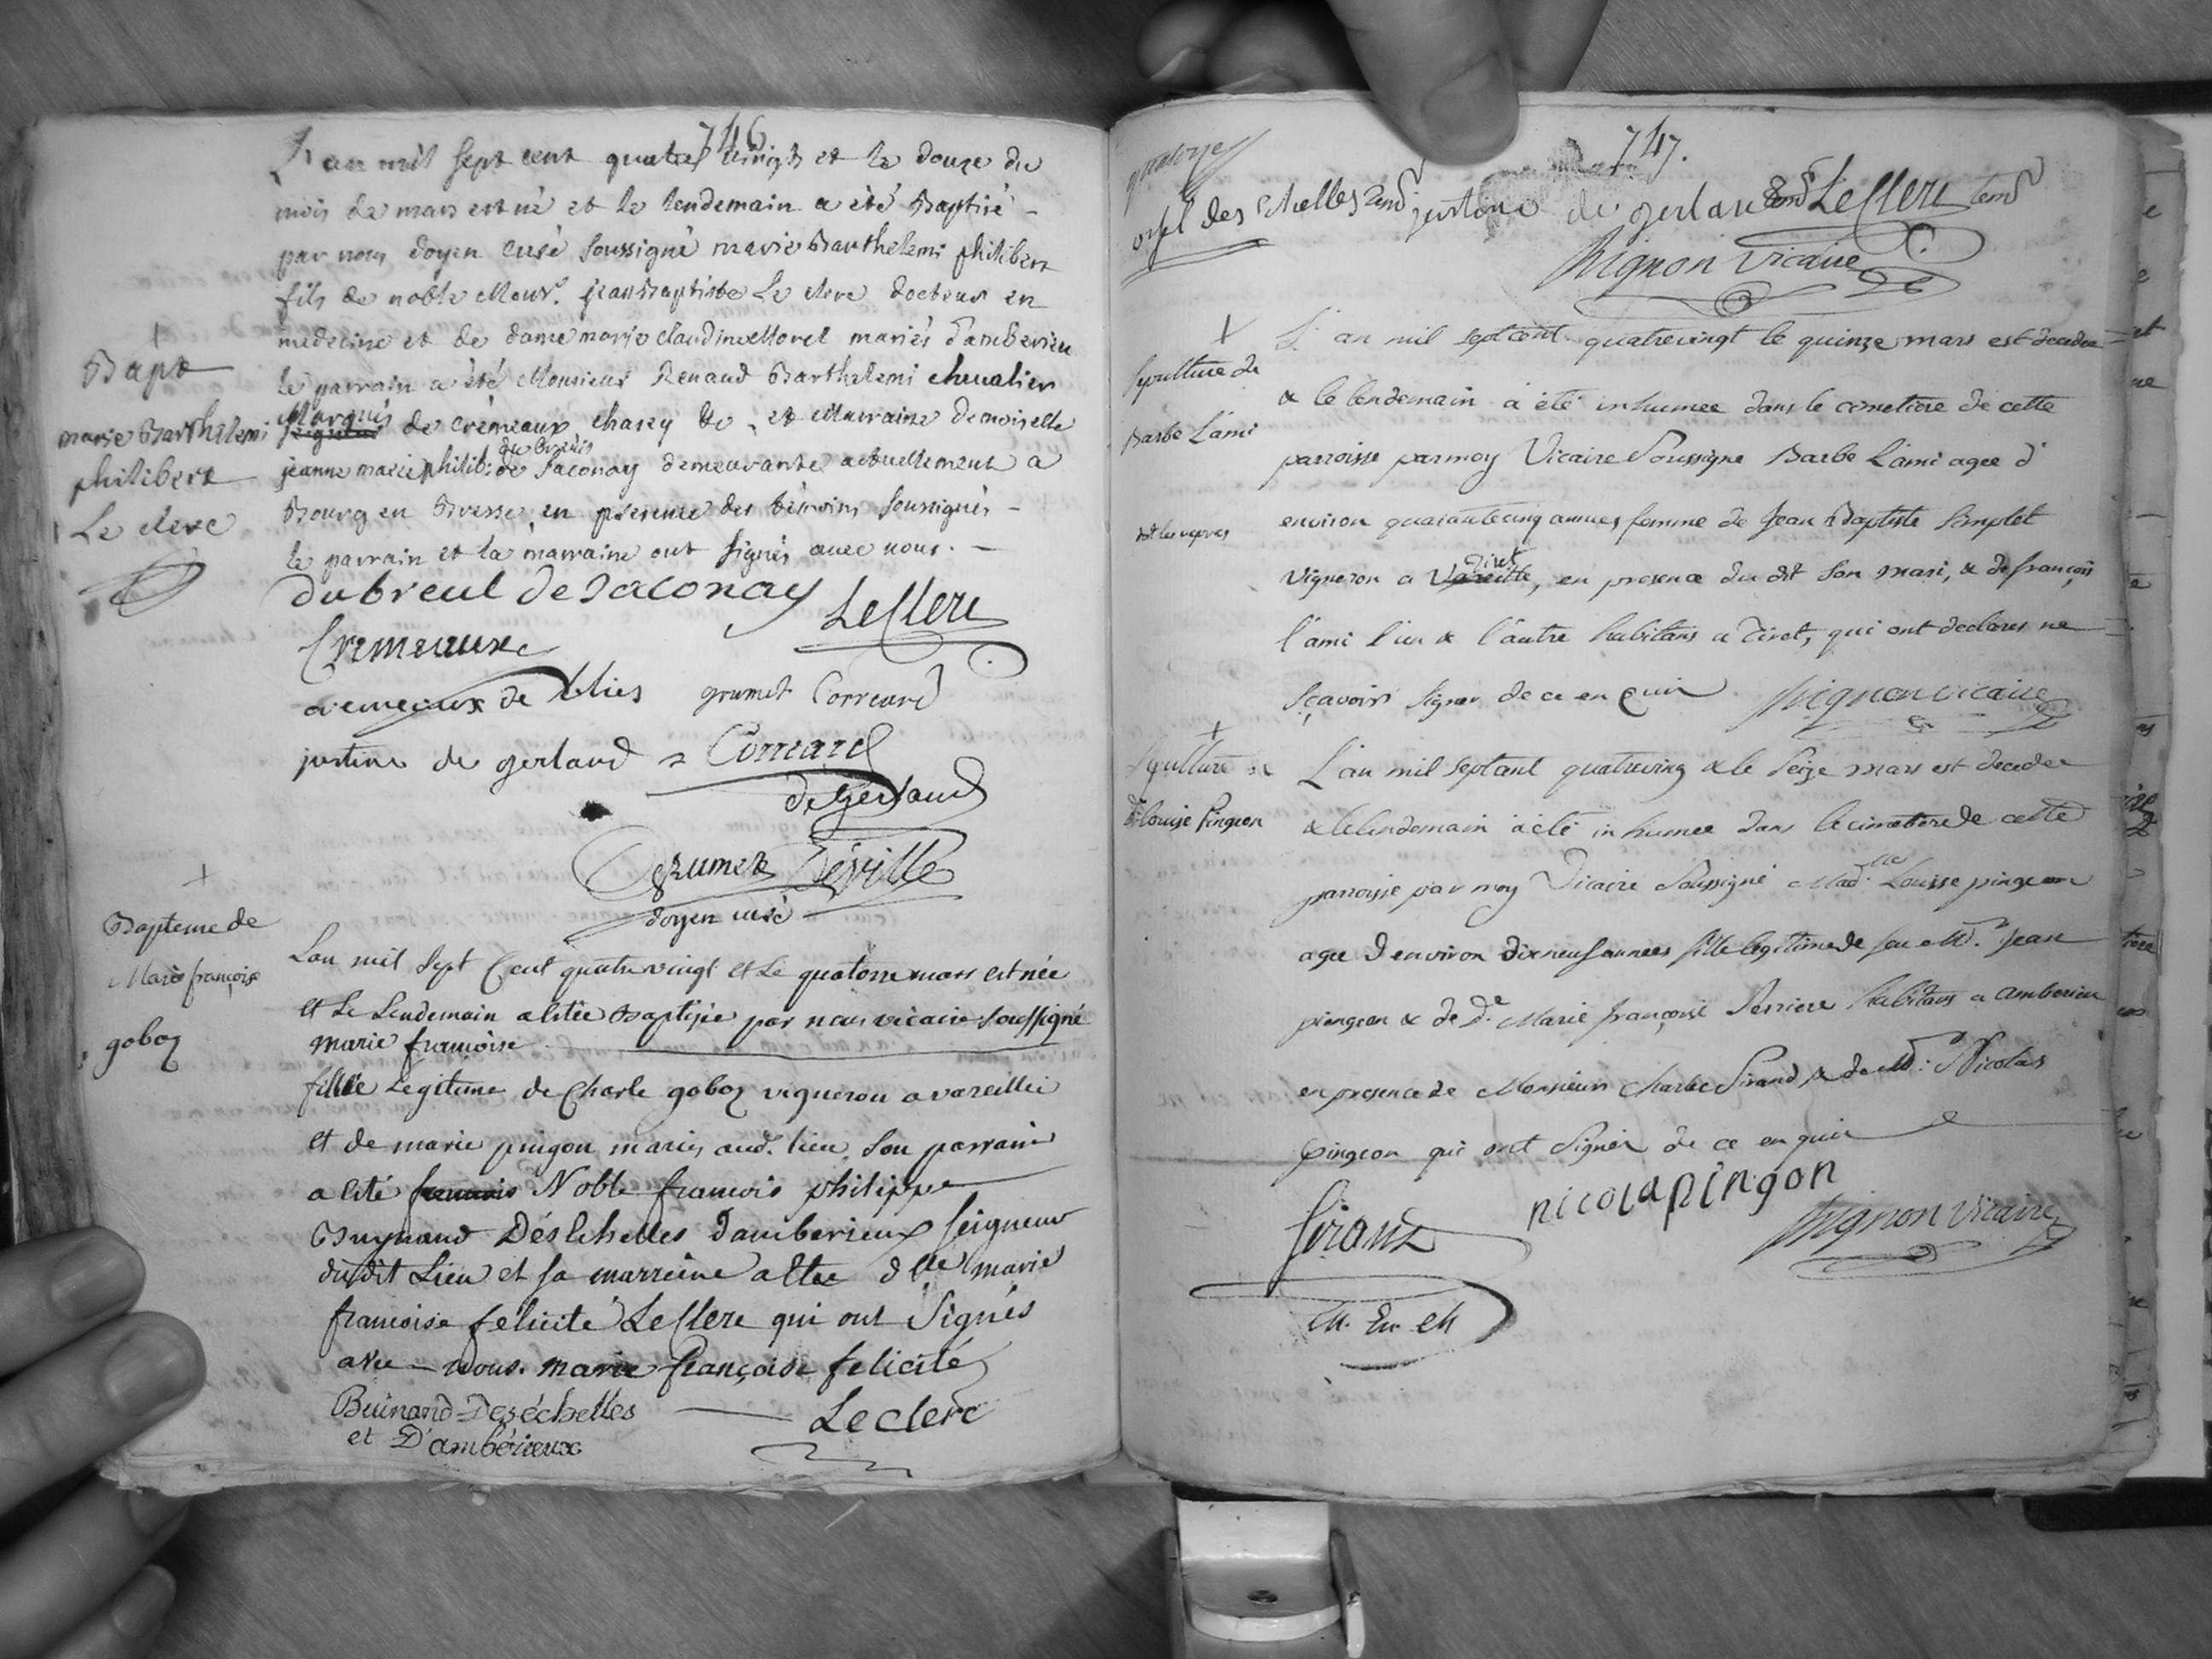 746
L'an mil sept cent quatre vingts et le douze du
mois de mars est né et le lendemain a été Baptisé -
par nous doyen curé soussigné marie Barthelemi philibert
fils de noble Monsr. jean Baptiste Le clerc docteur en
medecine et de dame marie claudine Morel mariés d'amberieu
le parrain a été Monsieur Renaud Barthelemi chevalier
Marquis de crémeaux chasey &c, et Marraine demoiselle
jeanne marie philib. du Breul de Saconay demeurante actuellement a
Bourg en Bresse, en presence des témoins soussignés -
le parrain et la marraine ont signés avec nous. -
Bapt
marie Barthelemi
philibert
Le clerc
dubreul de Saconay
LeClerc
Cremeaux
cremeaux de grumet Correard
justine de gerland Correard
de Gerland
Grumet Deville
doyen curé
Bapteme de
Marie françoise
goboz
Lan mil sept Cent quatre vingt et Le quatorze mars est née
et Le Lendemain a etée Baptisée par nous vicaire soussigné
marie francoise
fille Legitime de Charle goboz vigneron a vareille
et de marie pingon mariés aud. lieu son parrain
a été francois Noble francois philippe
Buynand Des Echelles d'amberieux seigneur
dudit Lieu et sa marreine a etee dlle marie
francoise félicité LeClerc qui ont signés
avec nous. marie françoise felicité
Buinand-Deséchelles
Leclerc
et D'ambérieux
747.
des Echelles justine de gerland LeClerc
Mignon vicaire
Sepulture de
Barbe Lami
L'an mil sept cent quatrevingt le quinze mars est decedee
& le lendemain a été inhumee dans le cimetiere de cette
parroisse par moy Vicaire Soussigné Barbe Lami agee d'
environ quarante cinq annees femme de Jean Baptiste
Tiret
vigneron a Vareille, en presence du dit son mari, & de françois
l'ami l'un & l'autre habitans a Tiret, qui ont declarés ne
sçavoir signer de ce enquis Mignon vicaire
Sepulture de
dlle louise Pingeon
L'an mil sept cent quatreving & le seize mars est decedee
& le lendemain a été inhumee dans le cimetiere de cette
parroisse par moy Vicaire Soussigné Mad.lle Louise pingeon
agee d'environ dixneuf annees fille legitime de feu Mr. Jean
pingeon & de De. Marie françoise Perriere habitans a amberieu
en presence de Monsieur Charle Sirand & de Mr: Nicolas
pingeon qui ont signer de ce enquis
nicola pingon
Sirand
Mignon vicaire